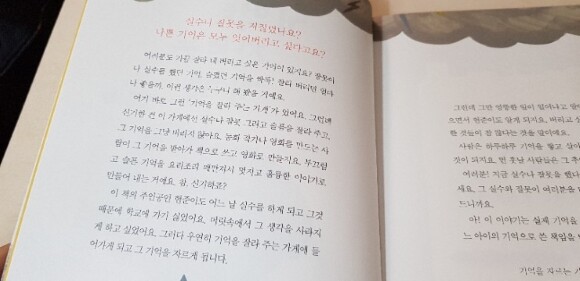 실수나 잘못을 저질렀나요?
나쁜 기억은 모두 잊어버리고 싶다고요?
여러분도 가끔 잘라 내 버리고 싶은 기억이 있지요? 잘못이
나 실수를 했던 기억, 슬펐던 기억을 싹뚝! 잘라 버리면 얼마
나 좋을까. 이런 생각은 누구나 해 봤을 거예요.
여기 바로 그런 '기억을 잘라 주는 가게'가 있어요. 그런데
신기한 건 이 가게에선 실수나 잘못 그리고 슬픔을 잘라 주고,
그 기억을 그냥 버리지 않아요. 동화 작가나 영화를 만드는 사
람이 그 기억을 받아가 책으로 쓰고 영화로 만들지요. 부끄럽
고 슬픈 기억을 요리조리 매만져서 멋지고 훌륭한 이야기로
만들어 내는 거예요. 참, 신기하죠?
이 책의 주인공인 형준이도 어느 날 실수를 하게 되고 그것
때문에 학교에 가기 싫었어요. 머릿속에서 그 생각을 사라지
게 하고 싶었어요. 그러다 우연히 기억을 잘라 주는 가게에 들
어가게 되고 그 기억을 자르게 됩니다.
그런데 그런 엉뚱한 일이 일어나고
으면서 형준이도 알게 되지요. 버리고 싶
한 것들이 참 많다는 것을 말이에요.
사람은 하루하루 기억을 먹고
것이 되지요. 먼 훗날 사람들은 그 추
여러분! 지금 실수나 잘못을 했다
세요. 그 실수와 잘못이 여러분을
드니까요.
아! 이 이야기는 실제 기억을
느 아이의 기억으로 쓴 책임을
기억을 자르는 가